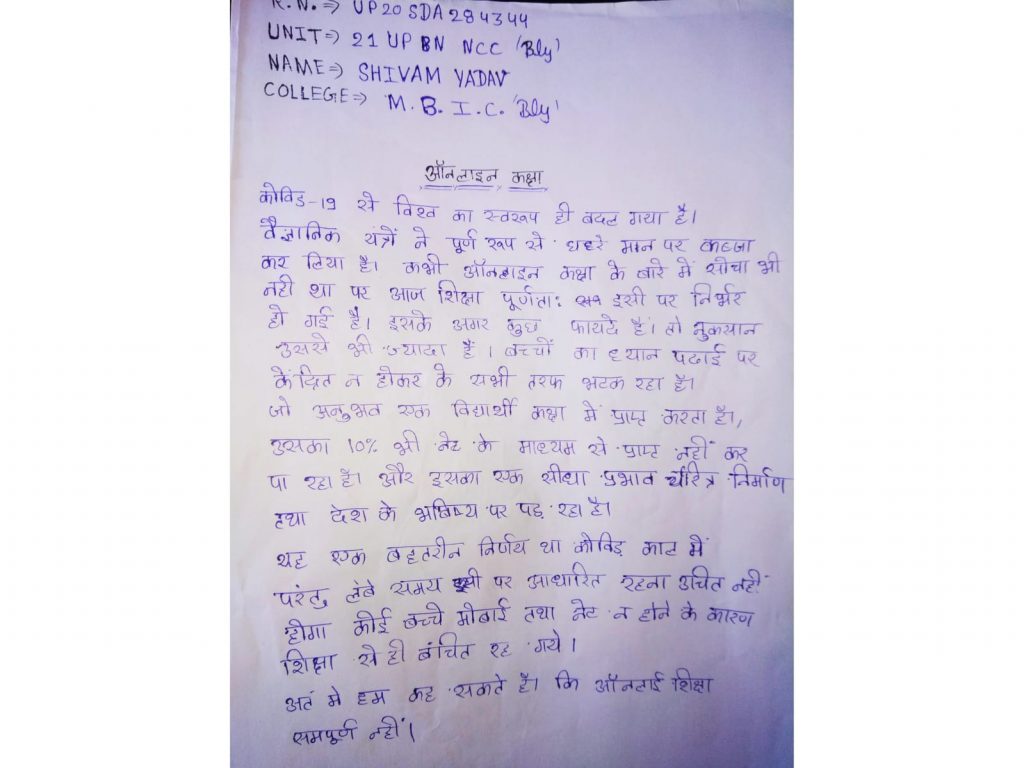 R.N.⇒ UP20SDA284344
UNIT⇒ 21 UP BN NCC 'Bly'
NAME⇒ SHIVAM YADAV
COLLEGE⇒ M.B.I.C. 'Bly'
ऑनलाइन कक्षा
कोविड-19 से विश्व का स्वरूप ही बदल गया है।
वैज्ञानिक यंत्रों ने पूर्ण रूप से मान पर कब्जा
कर लिया है। कभी ऑनलाइन कक्षा के बारे में सोचा भी
नही था पर आज शिक्षा पूर्णता: इसी पर निर्भर
हो गई है। इसके अगर कुछ फायदे है। तो नुकयान
उससे भी ज्यादा हैं। बच्चों का ध्यान पढाई पर
केंद्रित न होकर के सभी तरफ भटक रहा है।
जो अनुभव एक विद्यार्थी कक्षा में प्राप्त करता है,
उसका 10% भी नेट के माध्यम से प्राप्त नहीं कर
पा रहा है। और इसका एक सीधा प्रभाव चरित्र निर्माण
तथा देश के भविष्य पर पड़ रहा है।
यह एक बहतरीन निर्णय था कोविड काल में
परंतु लंबे समय इसी पर आधारित रहना उचित नहीं
होगा कोई बच्चे मोबाई तथा नेट न होने के कारण
शिक्षा से ही बंचित रह गये।
अतं मे हम कह सकते है। कि ऑनलाई शिक्षा
समपूर्ण नहीं।